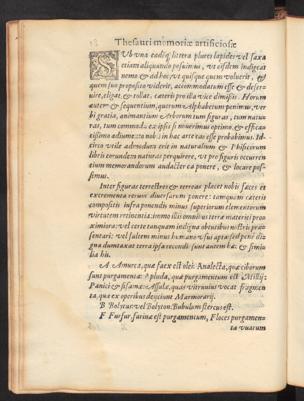 Thesauri memoriæ artificiosæ
SUb vna eadēq; littera plures lapides vel saxa
etiam aliquando posuimus, vt eisdem indigeat
nemo & ad hoc, vt quisque quem voluerit, &
quem suo proposito viderit, accommodatum esse & deseruire,
eligat, & tollat. cæteris pro illa vice dimissis. Horum
autem & sequentium, quorum Alphabetum ponimus, verbi
gratia, animantium Arborum tum figuras, tum naturas,
tum commoda ex ipsis si nouerimus optimè, & efficacissima
admodum nobis in hac arte tas esse probabimus.
circo vtile admodum erit in naturalium & Phisicorum
libris eorundem naturas perquirere, vt pro figuris occurrentium
memorandorum audacter ea ponere, & locare possimus.
Inter figuras terrestres & terreas placet nobis fæces et
excrementa rerum diuersarum ponere: tamquam cæteris
compositis infra ponendis minus superiorum elementorum
virtutem retinentia: immo illis omnibus terræ materiei proximiora:
vel certe tanquam indigna obtutibus nostris præsentari:
vel saltem minus humano vsui apta: sed penè digna
dumtaxat terra ipsa recondi: sunt autem hæc & similia
his.
A Amurca, quæ fæx est olei: Analecta, quæ ciborum
sunt purgamenta: Apluda, quæ purgamentum est Millij:
Panici & sisamæ: Assula, quas vitruuius vocat fragmenta,
quæ ex operibus deijciunt Marmorarij.
B Bolyton: vel Bolyton. Bubulum stercus est.
F Furfur, farinæ est purgamentum, Floces purgamenta
vuarum